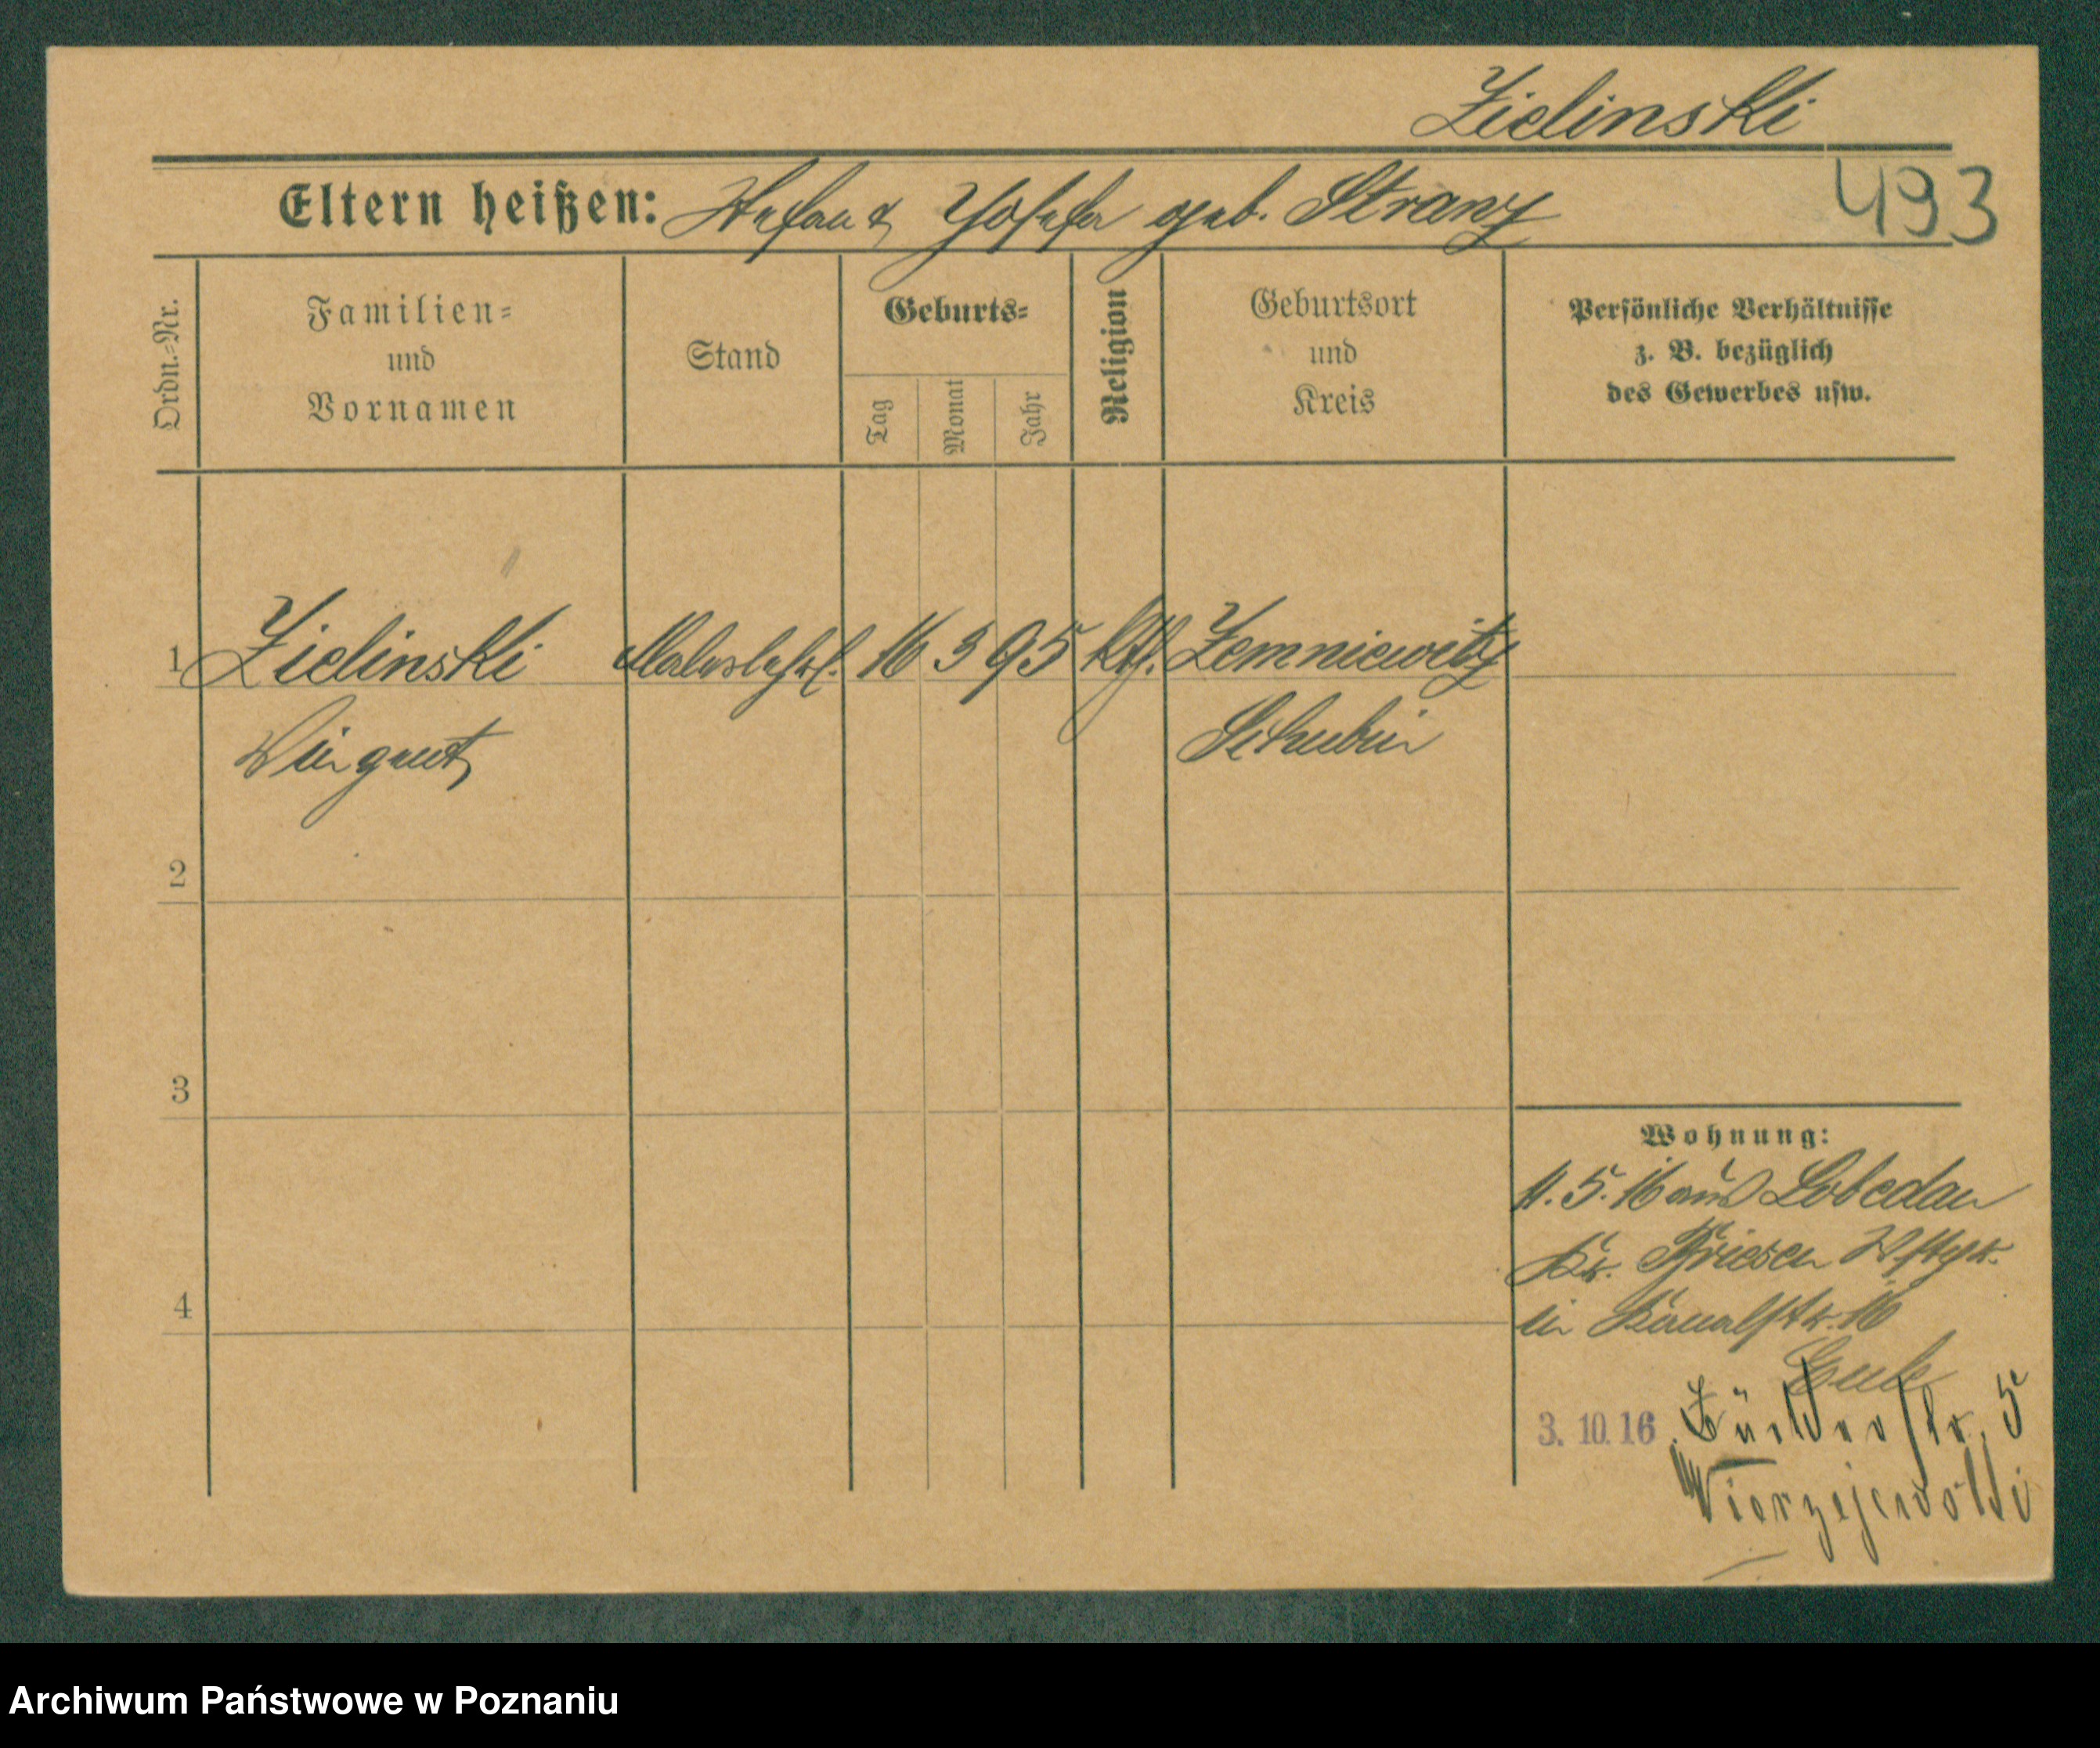 Zielinski
Eltern heißen: Stefan & Josefa geb. Stranz
493
Ordn.=Nr.
Familien=
und
Vornamen
Stand
Geburts=
Tag
Monat
Jahr
Religion
Geburtsort
und
Kreis
Persönliche Verhältnisse
z. B. bezüglich
des Gewerbes usw.
1 Zielinski 16 3 95 kth. Zemniewitz
Schubin
2
3
4
Wohnung:
11. 5. 16 aus Lobedau
Kr. Briesen
in Kanalstr. 16
3. 10. 16 5
Wierzejewski
Archiwum Państwowe w Poznaniu